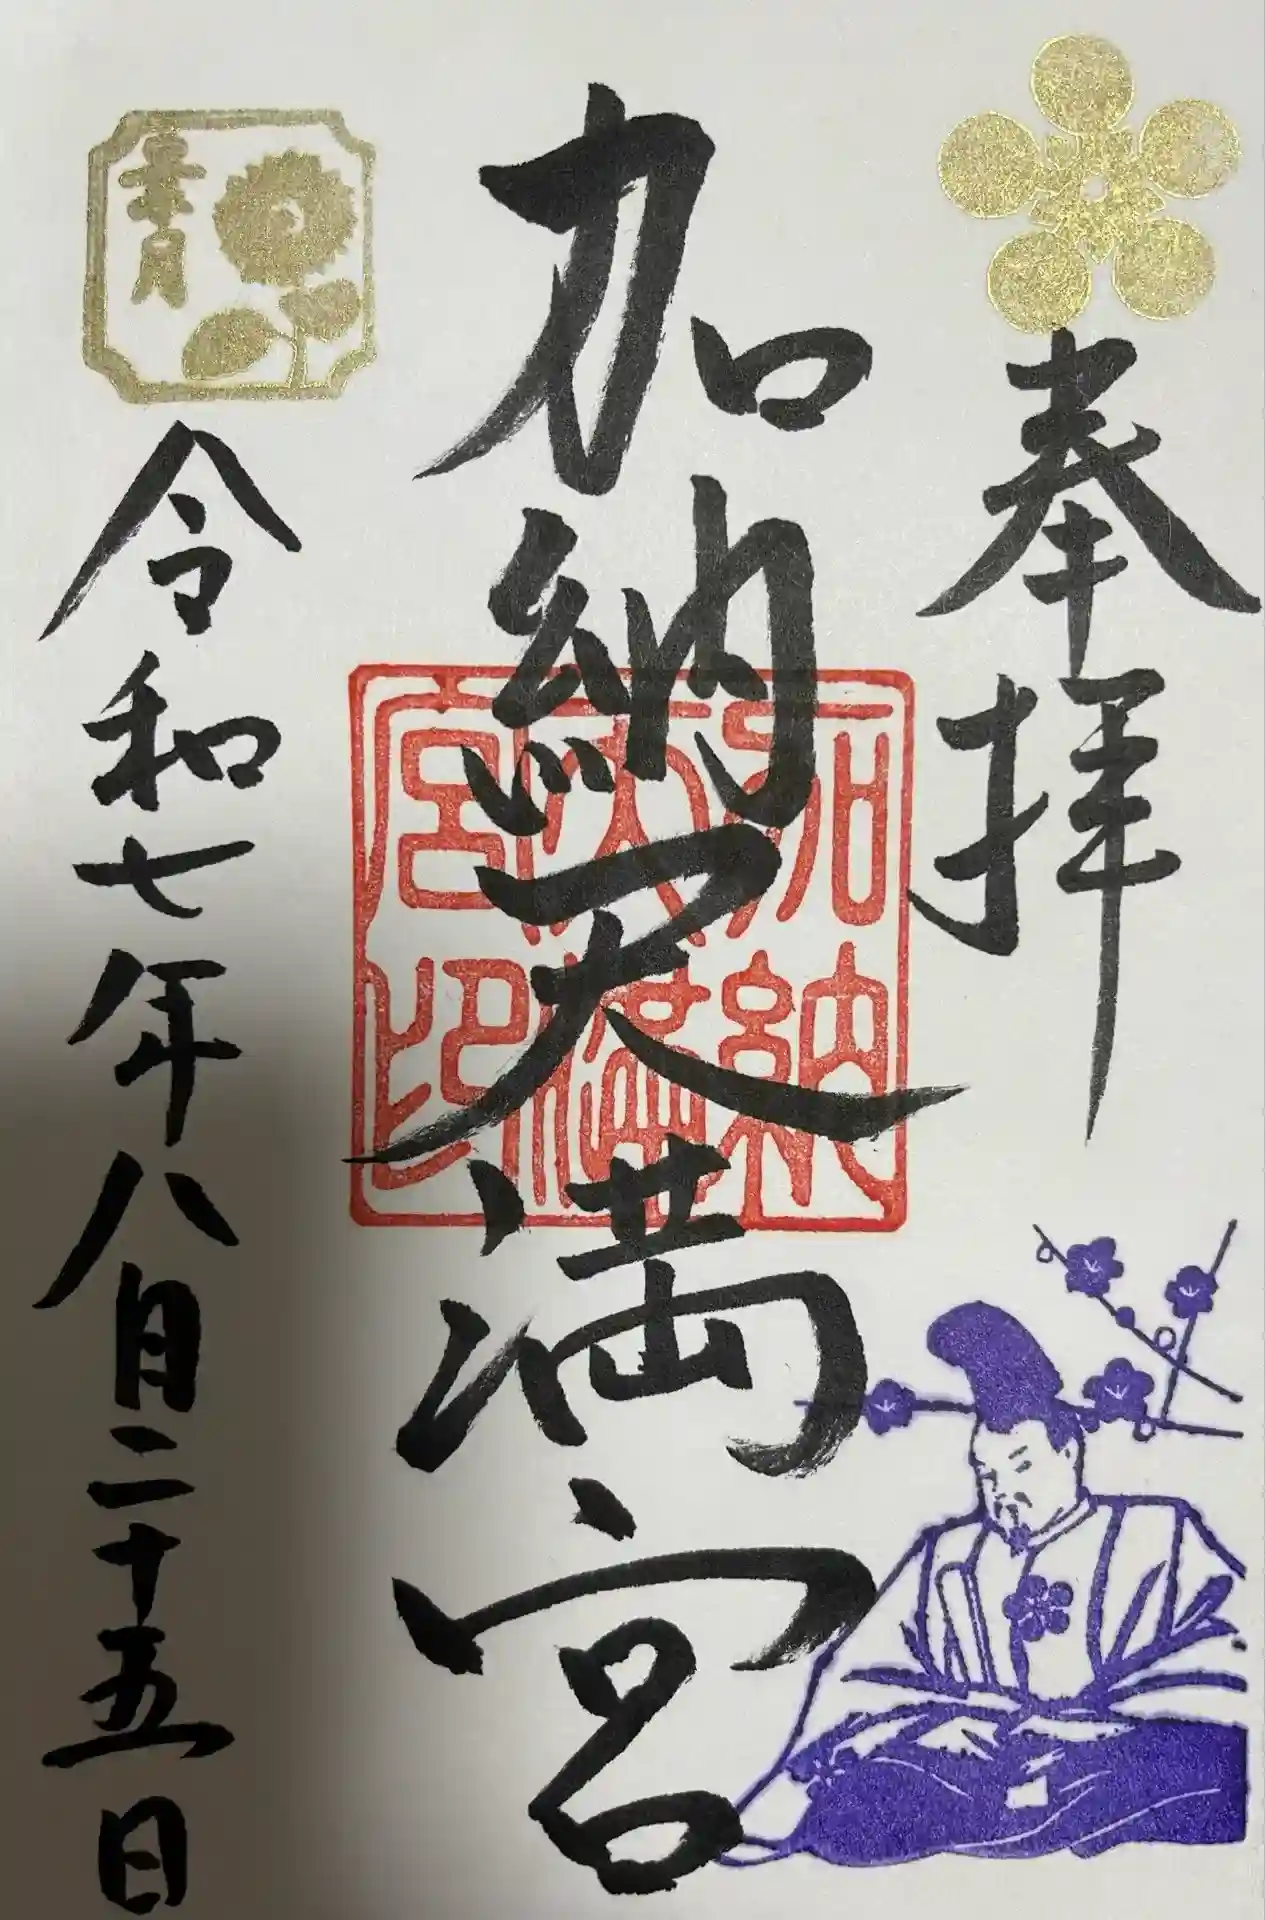 奉拝
加納天満宮
加納
天満
宮印
葉月
令和七年八月二十五日